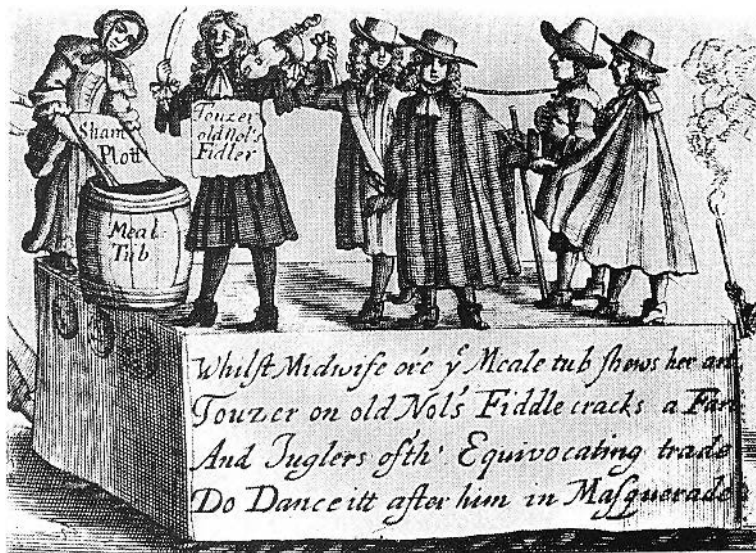 Sham
Plott
Meal
Tub
Touzer
old Nol's
Fidler
Whilſt Midwife o're yᵉ Meale tub ſhews her art
Touzer on old Nol's Fiddle cracks a
And Juglers of th' Equivocating trade
Do Dance itt after him in Maſquerade